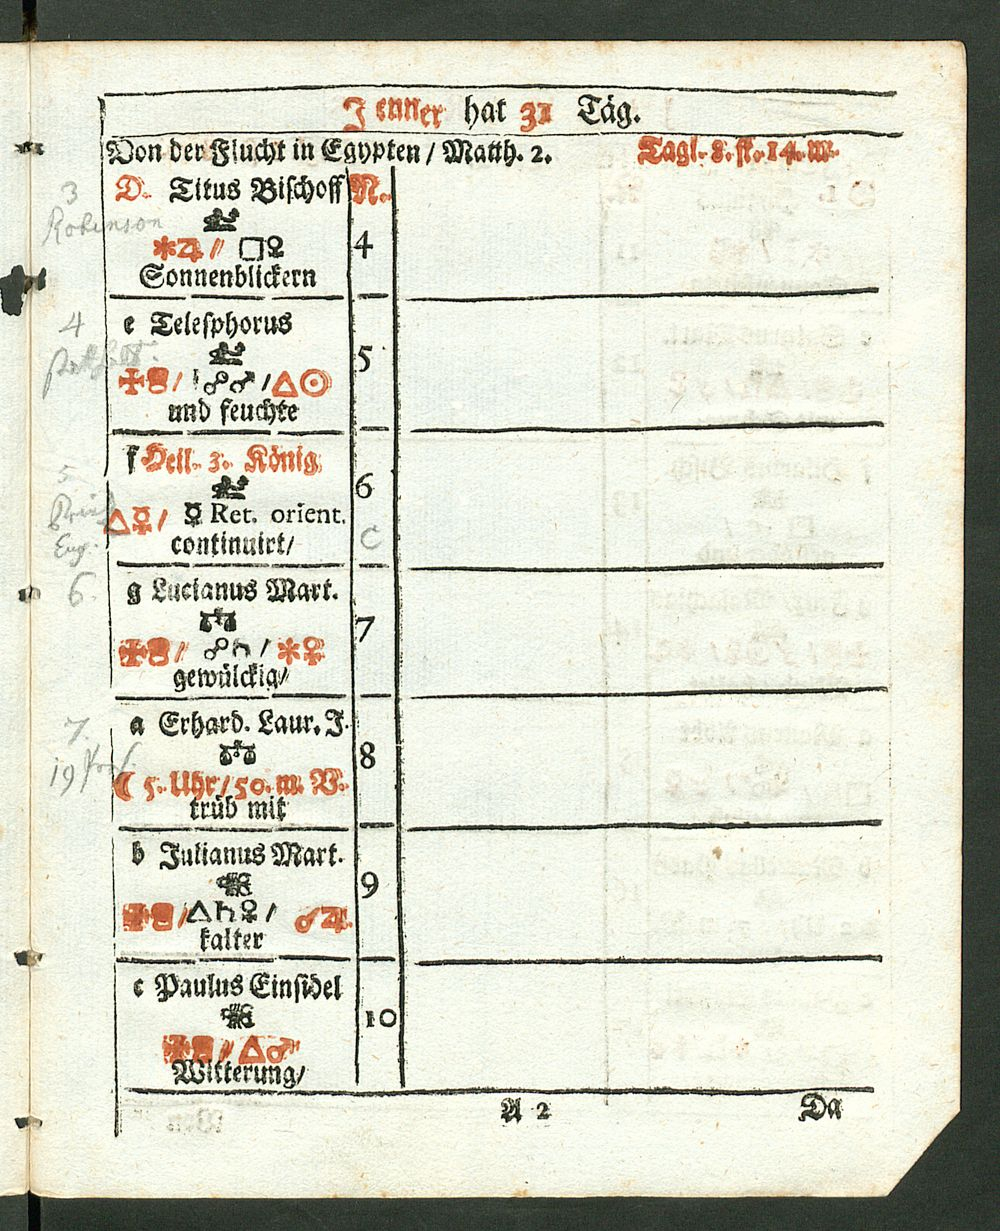 Jenner hat 31 Täg.
Von der Flucht in Egypten / Matth. 2. Tagl. 8. st. 14. m.
D. Titus Bischoff N.
3
Robinson
✶♃ // □♀ 4
Sonnenblickern
4
e Telesphorus
5
/ ☍♂ / △☉
und feuchte
5
f Heil. 3. König
6
△☿ / ☿ Ret. orient.
Eug.
continuirt/ C
6.
g Lucianus Mart.
7
/ ☍♄ / ✶♀
gewülckig/
7.
a Erhard. Laur. J.
8
19
☾ 5. Uhr / 50. m. V.
trüb mit
b Julianus Mart.
9
/ △♄♀ / ☌♃
kalter
c Paulus Einsidel
10
// △♂
Witterung/
A 2 Da